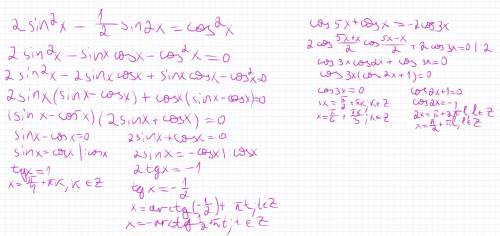 2 sin²x - 1/2 sin2x = cos²x
2 sin²x - sinx cosx - cos²x = 0
2 sin²x - 2sinx cosx + sinx cosx - cos²x=0
2sinx (sinx - cosx) + cosx (sinx - cosx)=0
(sinx - cosx) (2sinx + cosx) = 0
sinx - cosx=0 2sinx + cosx = 0
sinx = cosx |:cosx 2sinx = -cosx |:cosx
tgx = 1 2tgx = -1
x = π/4 + πk, k ∈ Z tgx = -1/2
x = arctg(-1/2) + πt, t∈Z
x = -arctg 1/2 + πt, t ∈ Z
cos5x + cosx = -2cos3x
2cos (5x+x)/2 cos (5x-x)/2 + 2cos3x=0 |:2
cos3x cos2x + cos3x=0
cos3x (cos2x + 1)=0
cos3x = 0 cos2x+1=0
3x = π/2 + πk, k∈Z cos2x = -1
x = π/6 + πk/3, k∈Z 2x = π + 2πl, l∈Z
x = π/2 + πl, l∈Z